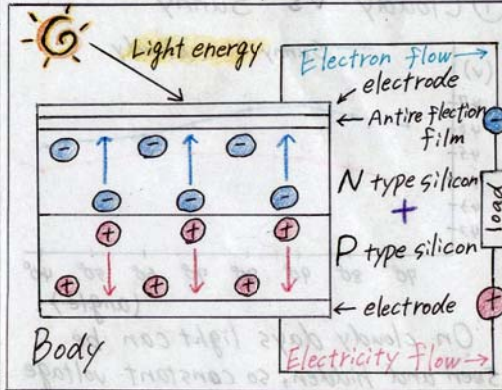 Light energy
Electron flow →
electrode
Antireflection
film
N type silicon
+
P type silicon
load
electrode
Body
Electricity flow →
- - -
- - -
+ + +
+ + +
-
+